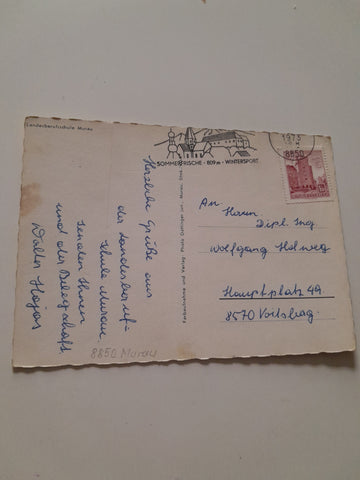 Landesberufsschule Murau
SOMMERFRISCHE · 809 m · WINTERSPORT
1973
8850
Herzliche Grüße aus
der Landesberuf-
schule Murau,
senden Ihnen
und der Belegschaft,
Walter Hojas
8850 Murau
An
Herrn.
Dipl. Ing
Wolfgang Holweg
Hauptplatz 49
8570 Voitsberg